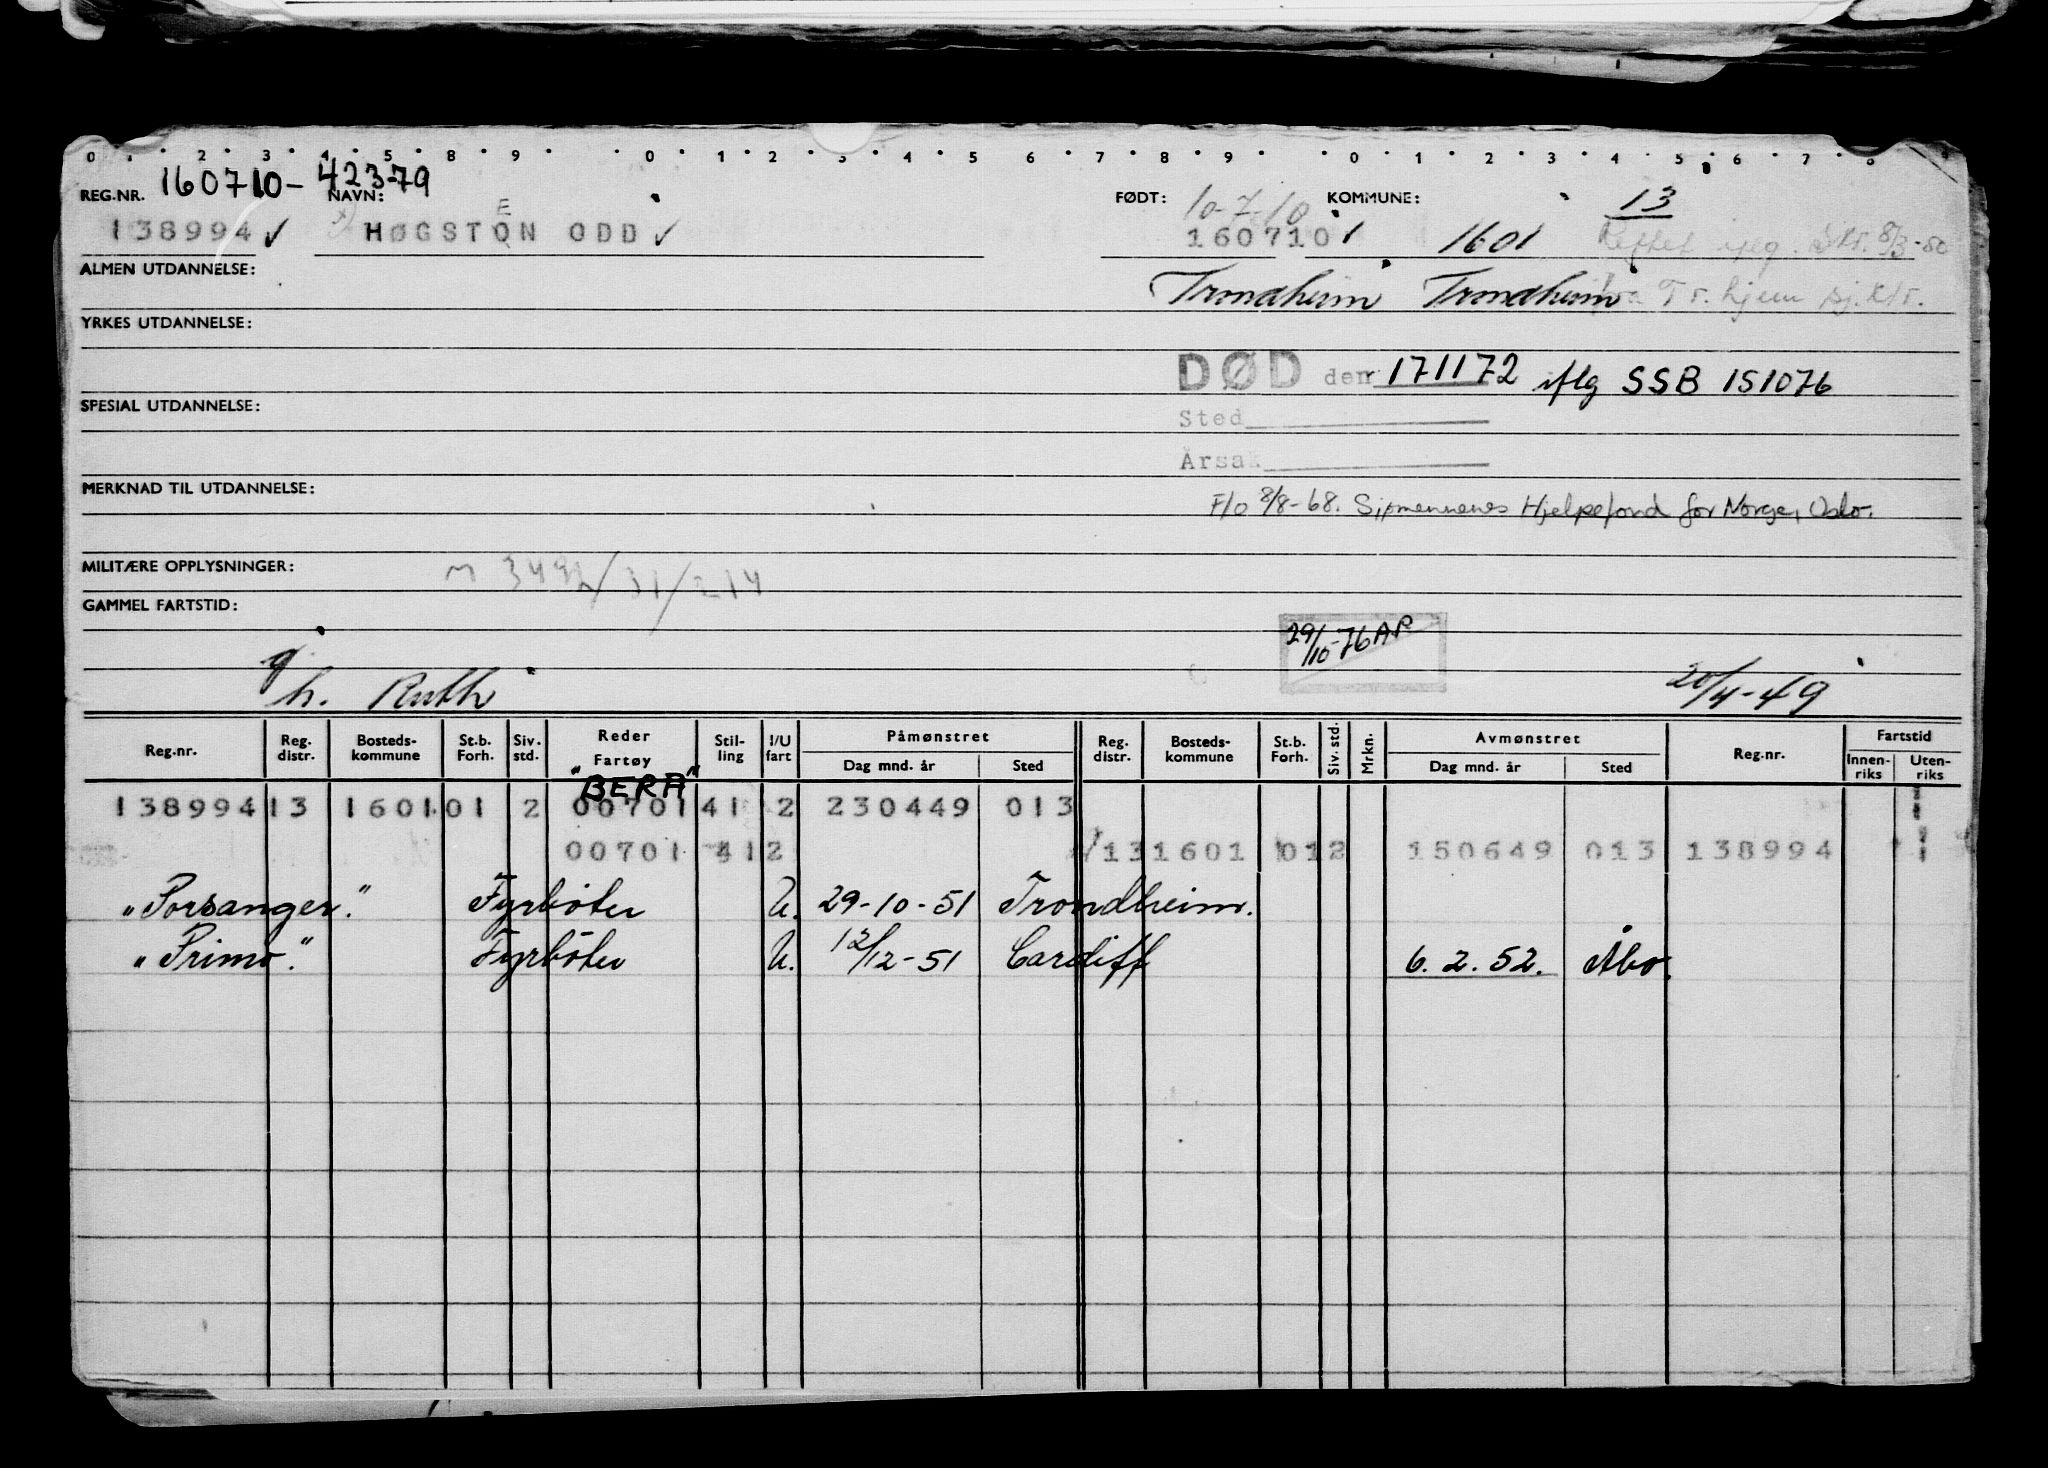 0 1 2 3 4 5 8 9 0 1 2 3 4 5 6 7 8 9 0 1 2 3 4 5 6 7 8
REG.NR. 160710-42379 NAVN: FØDT: 10-7-10 KOMMUNE: 13
E
138994 ✓ HØGSTON ODD ✓ 160710 1601 8/3-50
ALMEN UTDANNELSE: Trondheim Trondheim fra Tr.hjem sj.ktr.
YRKES UTDANNELSE:
DØD den 171172 iflg SSB 151076
SPESIAL UTDANNELSE: Sted
Årsak
MERKNAD TIL UTDANNELSE: F/o 8/8-68. Sjømennenes Hjelpefond for Norge, Oslo.
MILITÆRE OPPLYSNINGER: M 3492/31/214
GAMMEL FARTSTID:
29/10-76 AP
g.
h. Ruth 20/4-49
Reg.nr. Reg. distr. Bosteds-kommune St.b. Forh. Siv. std. Reder Fartøy Stil-ling I/U fart Påmønstret Dag mnd. år Sted Reg. distr. Bosteds-kommune St.b. Forh. Siv. std. Mrkn. Avmønstret Dag mnd. år Sted Reg.nr. Fartstid Innen-riks Uten-riks
"BERA"
138994 13 1601 01 2 00701 41 2 230449 013
00701 41 2 13 1601 01 2 150649 013 138994
"Porsanger." Fyrbøter U. 29-10-51 Trondheim.
"Primo." Fyrbøter U. 12/12-51 Cardiff 6.2.52. Åbo.